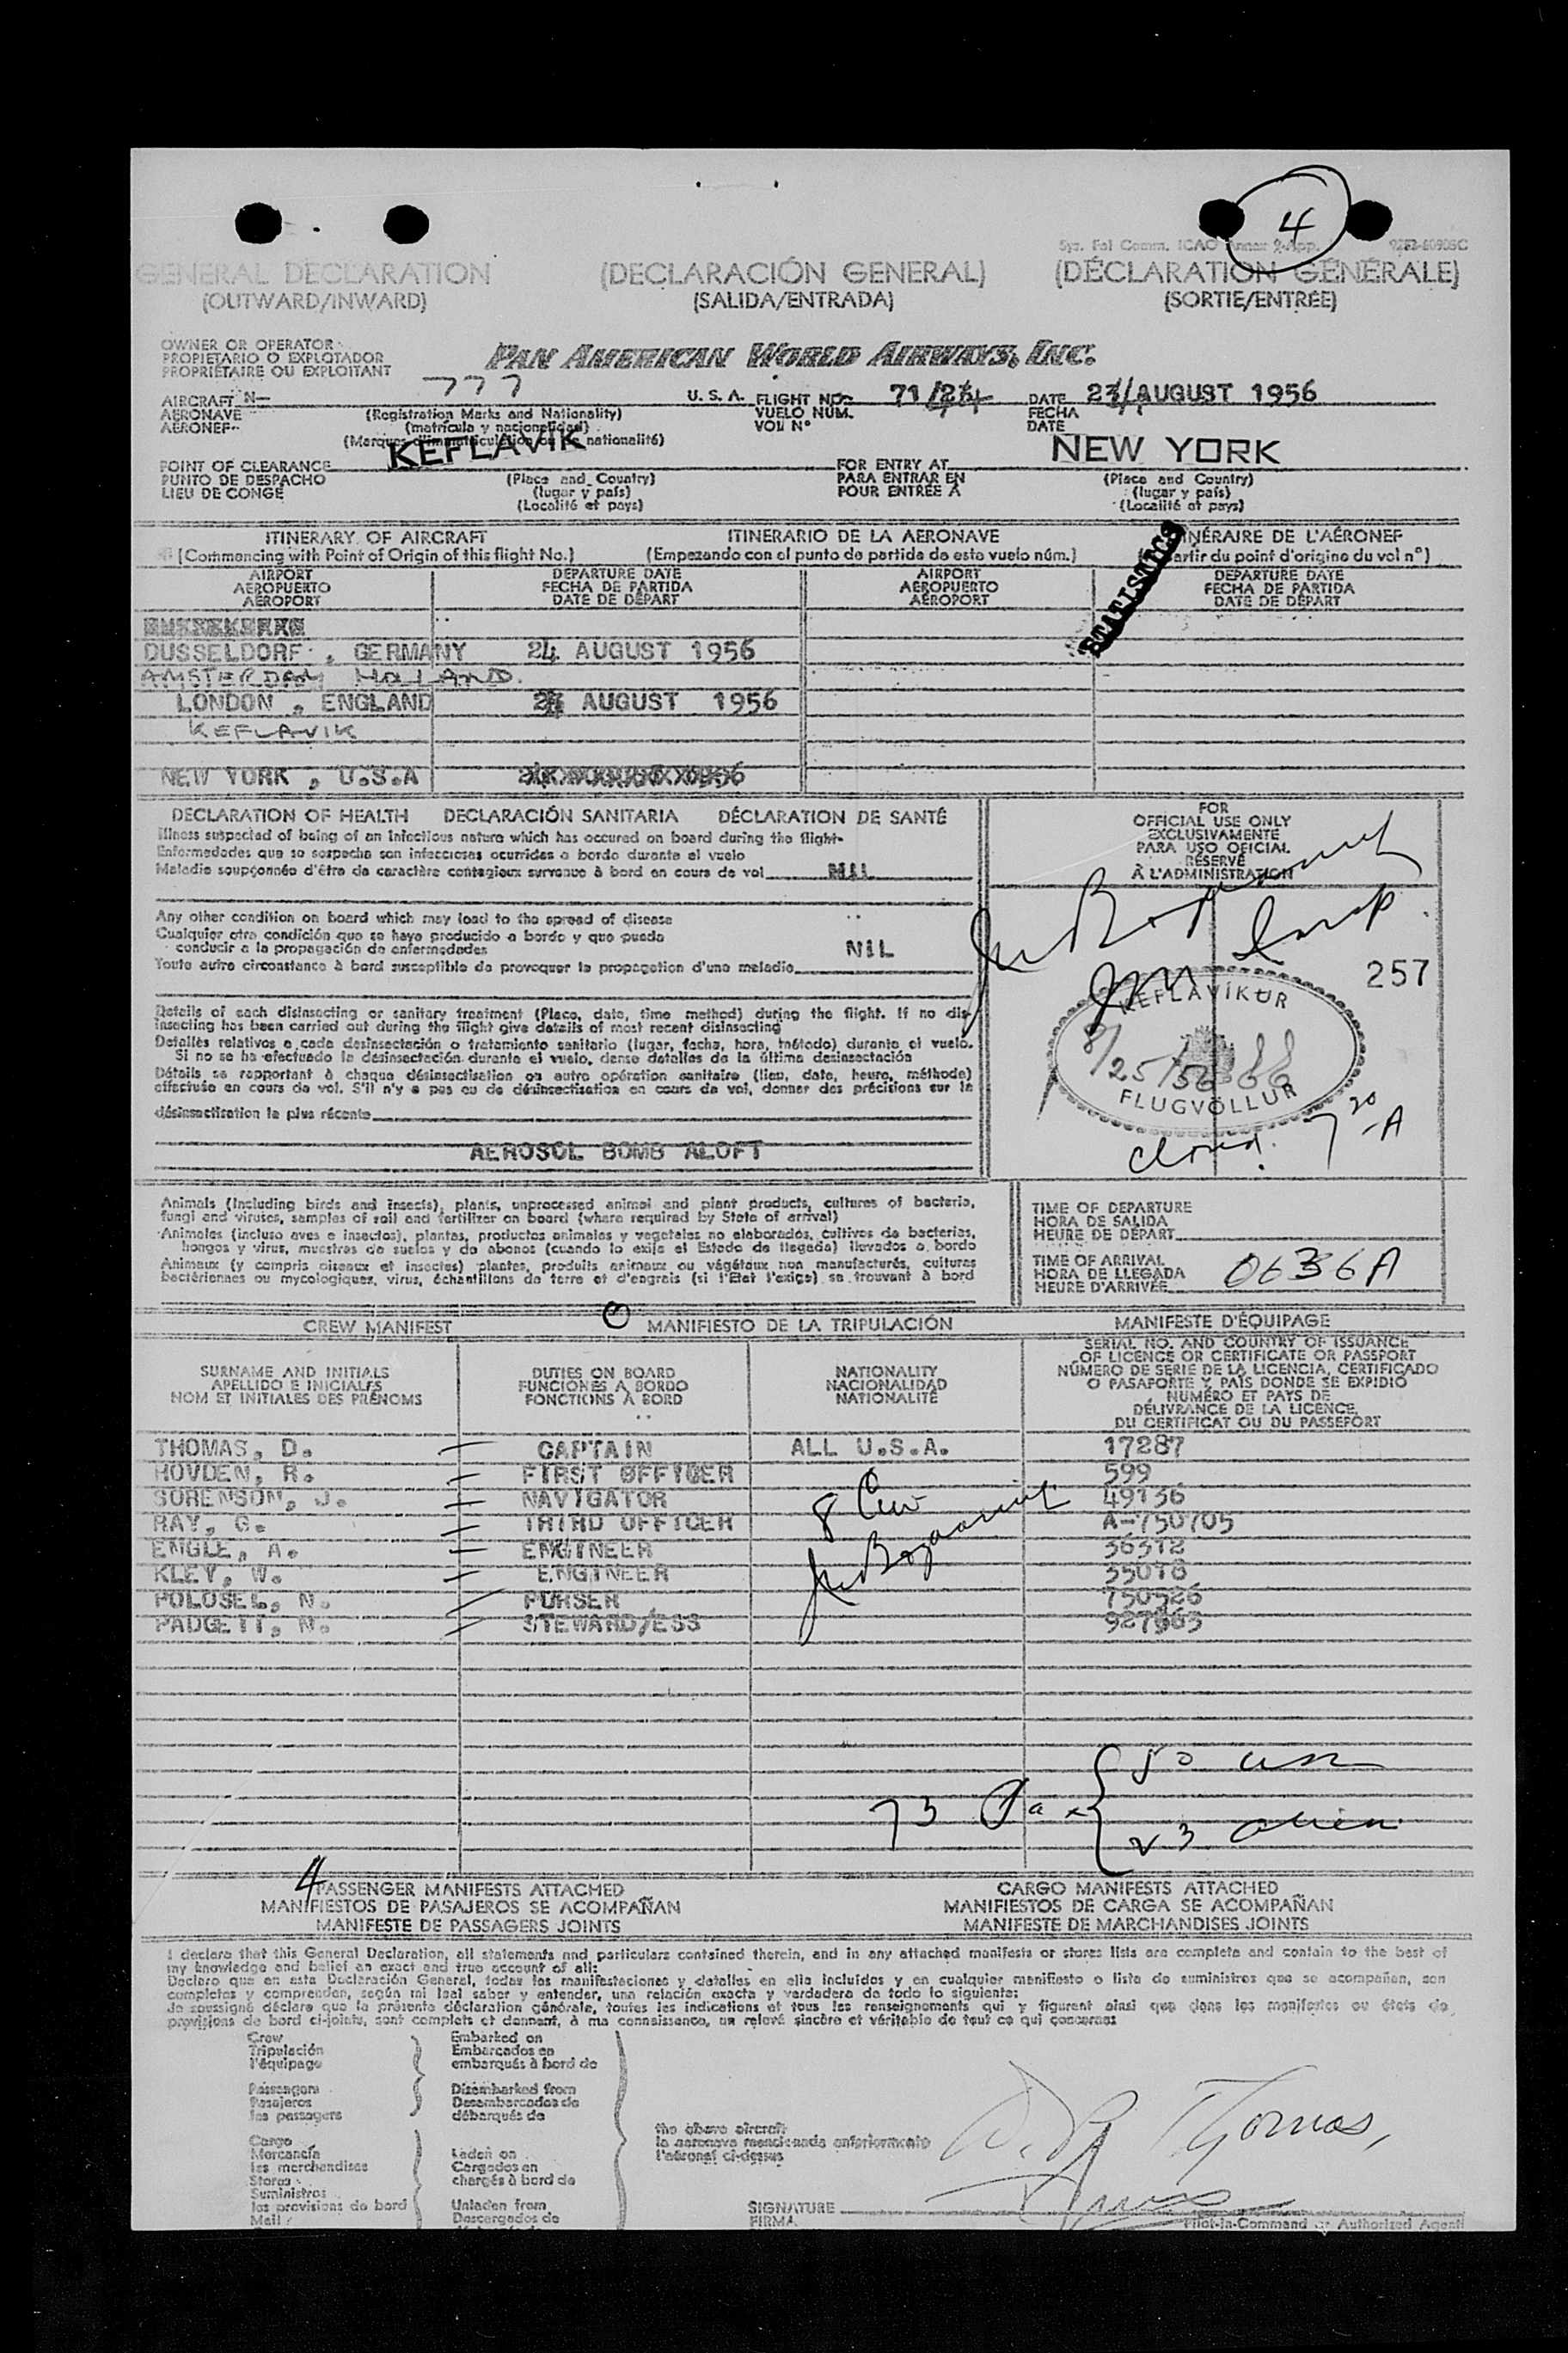 4
Sys. Fol Comm. ICAO Annex 9-App.
GENERAL DECLARATION (DECLARACIÓN GENERAL) (DÉCLARATION GÉNÉRALE)
(OUTWARD/INWARD) (SALIDA/ENTRADA) (SORTIE/ENTRÉE)
OWNER OR OPERATOR
PROPIETARIO O EXPLOTADOR
PROPRIÉTAIRE OU EXPLOITANT
PAN AMERICAN WORLD AIRWAYS, INC.
AIRCRAFT N- 777 U. S. A. FLIGHT NO. 71/ DATE 23/ AUGUST 1956
AERONAVE (Registration Marks and Nationality) VUELO NÚM. FECHA
AÉRONEF (matrícula y nacionalidad) VOL N° DATE
(Marques d'immatriculation ou de nationalité)
POINT OF CLEARANCE KEFLAVIK FOR ENTRY AT NEW YORK
PUNTO DE DESPACHO (Place and Country) PARA ENTRAR EN (Place and Country)
LIEU DE CONGÉ (lugar y país) POUR ENTRÉE À (lugar y país)
(Localité et pays) (Localité et pays)
ITINERARY OF AIRCRAFT ITINERARIO DE LA AERONAVE NÉRAIRE DE L'AÉRONEF
(Commencing with Point of Origin of this flight No.) (Empezando con el punto de partida de este vuelo núm.) artir du point d'origine du vol n°)
STATISTICS
AIRPORT DEPARTURE DATE AIRPORT DEPARTURE DATE
AEROPUERTO FECHA DE PARTIDA AEROPUERTO FECHA DE PARTIDA
AÉROPORT DATE DE DÉPART AÉROPORT DATE DE DÉPART
DUSSELDORF , GERMANY 24 AUGUST 1956
AMSTERDAM HOLAND.
LONDON , ENGLAND AUGUST 1956
KEFLAVIK
NEW YORK , U.S.A
DECLARATION OF HEALTH DECLARACIÓN SANITARIA DÉCLARATION DE SANTÉ
Illness suspected of being of an infectious nature which has occured on board during the flight-
Enfermedades que se sospecha son infecciosas ocurridas a bordo durante el vuelo
Maladie soupçonnée d'être de caractère contagieux survenue à bord en cours de vol NIL
Any other condition on board which may lead to the spread of disease
Cualquier otra condición que se haya producido a bordo y que pueda
conducir a la propagación de enfermedades NIL
Toute autre circonstance à bord susceptible de provoquer la propagation d'une maladie
Details of each disinsecting or sanitary treatment (Place, date, time method) during the flight. If no dis-
insecting has been carried out during the flight give details of most recent disinsecting
Detalles relativos a cada desinsectación o tratamiento sanitario (lugar, fecha, hora, método) durante el vuelo.
Si no se ha efectuado la desinsectación durante el vuelo, dense detalles de la última desinsectación
Détails se rapportant à chaque désinsectisation ou autre opération sanitaire (lieu, date, heure, méthode)
effectuée en cours de vol. S'il n'y a pas eu de désinsectisation en cours de vol, donner des précisions sur la
désinsectisation la plus récente
AEROSOL BOMB ALOFT
FOR
OFFICIAL USE ONLY
EXCLUSIVAMENTE
PARA USO OFICIAL
RÉSERVÉ
À L'ADMINISTRATION
257
KEFLAVÍKUR
8/25/56
FLUGVÖLLUR
7 20 A
Animals (including birds and insects), plants, unprocessed animal and plant products, cultures of bacteria,
fungi and viruses, samples of soil and fertilizer on board (where required by State of arrival)
Animales (incluso aves e insectos), plantas, productos animales y vegetales no elaborados, cultivos de bacterias,
hongos y virus, muestras de suelos y de abonos (cuando lo exija el Estado de llegada) llevados a bordo
Animaux (y compris oiseaux et insectes) plantes, produits animaux ou végétaux non manufacturés, cultures
bactériennes ou mycologiques, virus, échantillons de terre et d'engrais (si l'État l'exige) se trouvant à bord
TIME OF DEPARTURE
HORA DE SALIDA
HEURE DE DÉPART
TIME OF ARRIVAL
HORA DE LLEGADA
HEURE D'ARRIVÉE 0636A
CREW MANIFEST MANIFIESTO DE LA TRIPULACIÓN MANIFESTE D'ÉQUIPAGE
SURNAME AND INITIALS DUTIES ON BOARD NATIONALITY
APELLIDO E INICIALES FUNCIONES A BORDO NACIONALIDAD
NOM ET INITIALES DES PRÉNOMS FONCTIONS À BORD NATIONALITÉ
SERIAL NO. AND COUNTRY OF ISSUANCE
OF LICENCE OR CERTIFICATE OR PASSPORT
NÚMERO DE SERIE DE LA LICENCIA, CERTIFICADO
O PASAPORTE Y PAÍS DONDE SE EXPIDIÓ
NUMÉRO ET PAYS DE
DÉLIVRANCE DE LA LICENCE,
DU CERTIFICAT OU DU PASSEPORT
THOMAS, D. CAPTAIN ALL U.S.A. 17287
HOVDEN, R. FIRST OFFICER 599
SORENSON, J. NAVIGATOR 49136
RAY, G. THIRD OFFICER A-750705
ENGLE, A. ENGINEER 36372
KLEY, W. ENGINEER 35078
POLOSEL, N. PURSER 750526
PADGETT, N. STEWARD/ESS 927963
8 Crew
73 Pax { 50 usa
23 alien
4 PASSENGER MANIFESTS ATTACHED CARGO MANIFESTS ATTACHED
MANIFIESTOS DE PASAJEROS SE ACOMPAÑAN MANIFIESTOS DE CARGA SE ACOMPAÑAN
MANIFESTE DE PASSAGERS JOINTS MANIFESTE DE MARCHANDISES JOINTS
I declare that this General Declaration, all statements and particulars contained therein, and in any attached manifests or stores lists are complete and contain to the best of
my knowledge and belief an exact and true account of all:
Declaro que en esta Declaración General, todas las manifestaciones y detalles en ella incluídos y en cualquier manifiesto o lista de suministros que se acompañan, son
completos y comprenden, según mi leal saber y entender, una relación exacta y verdadera de todo lo siguiente:
Je soussigné déclare que la présente déclaration générale, toutes les indications et tous les renseignements qui y figurent ainsi que dans les manifestes ou états de
provisions de bord ci-joints, sont complets et donnent, à ma connaissance, un relevé sincère et véritable de tout ce qui concerne:
Crew Embarked on
Tripulación Embarcados en
l'équipage embarqués à bord de
Passengers Disembarked from
Pasajeros Desembarcados de
les passagers débarqués de
the above aircraft
la aeronave mencionada anteriormente
l'aéronef ci-dessus
Cargo
Mercancía Laden on
les marchandises Cargados en
Stores chargés à bord de
Suministros
les provisions de bord Unladen from
Mail Descargados de
Thomas,
SIGNATURE
FIRMA
Pilot-in-Command or Authorized Agent